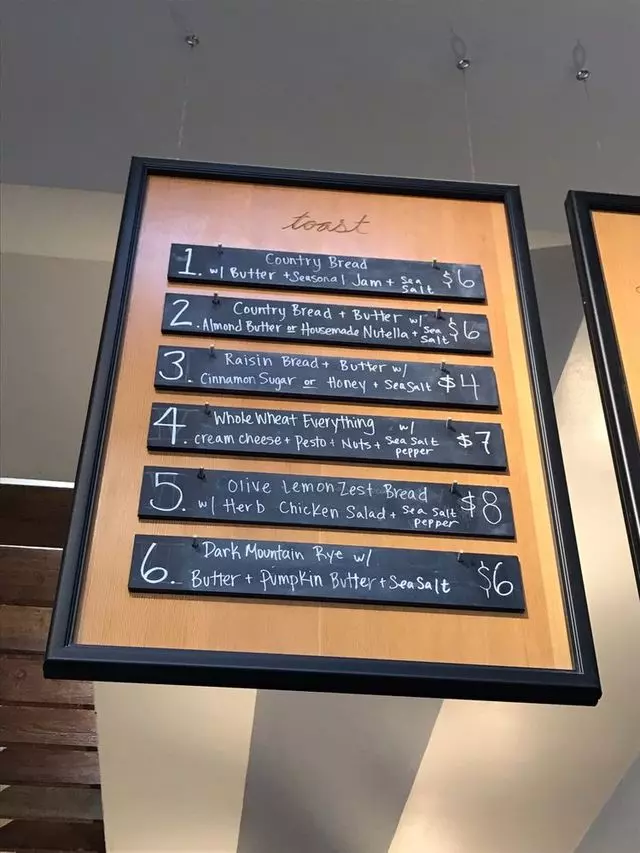 toast
1. Country Bread
w/ Butter + Seasonal Jam + Sea Salt $6
2. Country Bread + Butter w/
Almond Butter or Housemade Nutella + Sea Salt $6
3. Raisin Bread + Butter w/
Cinnamon Sugar or Honey + Sea Salt $4
4. Whole Wheat Everything w/
cream cheese + Pesto + Nuts + Sea Salt pepper $7
5. Olive Lemon Zest Bread
w/ Herb Chicken Salad + Sea Salt pepper $8
6. Dark Mountain Rye w/
Butter + Pumpkin Butter + Sea Salt $6